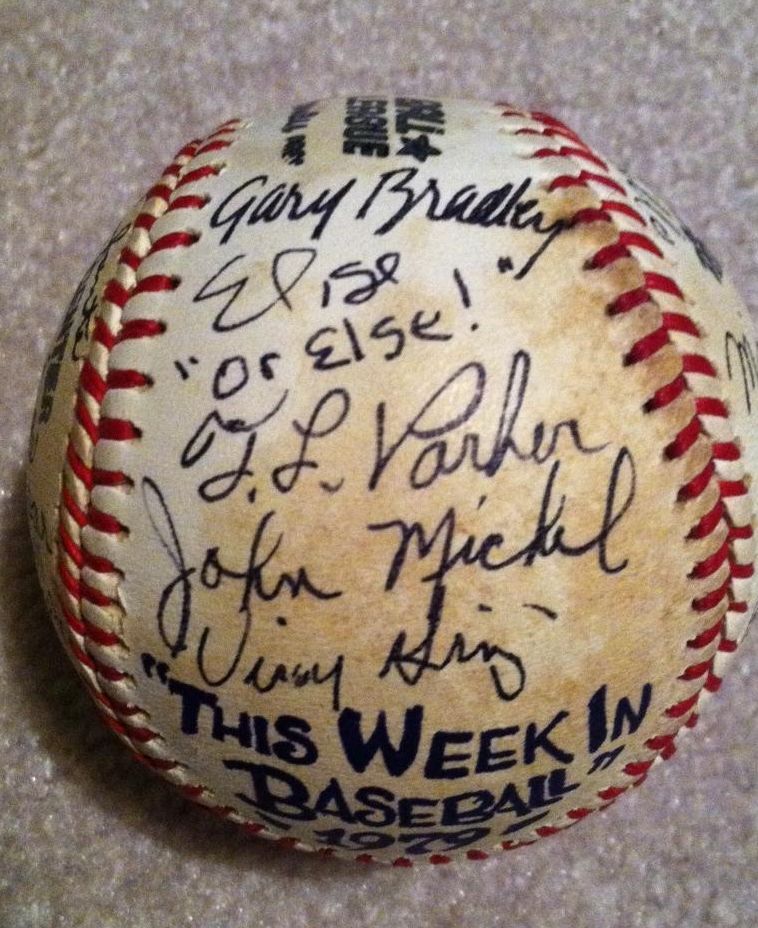 ALL★
LEAGUE
Gary Bradley
Elise
"Or Else!"
T. L. Parker
John Mickel
"THIS WEEK IN
BASEBALL"
- 1979 -